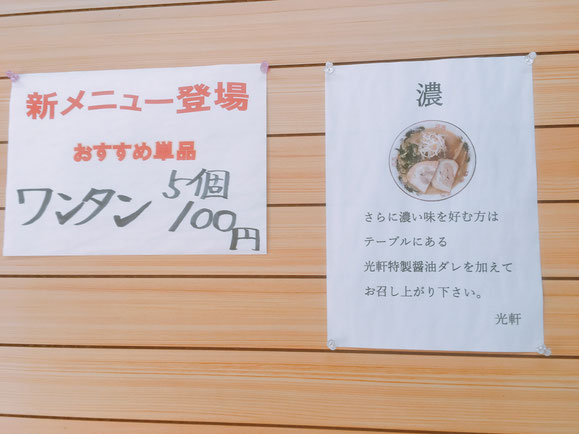 新メニュー登場
おすすめ単品
ワンタン 5個
100円
濃
さらに濃い味を好む方は
テーブルにある
光軒特製醤油ダレを加えて
お召し上がり下さい。
光軒